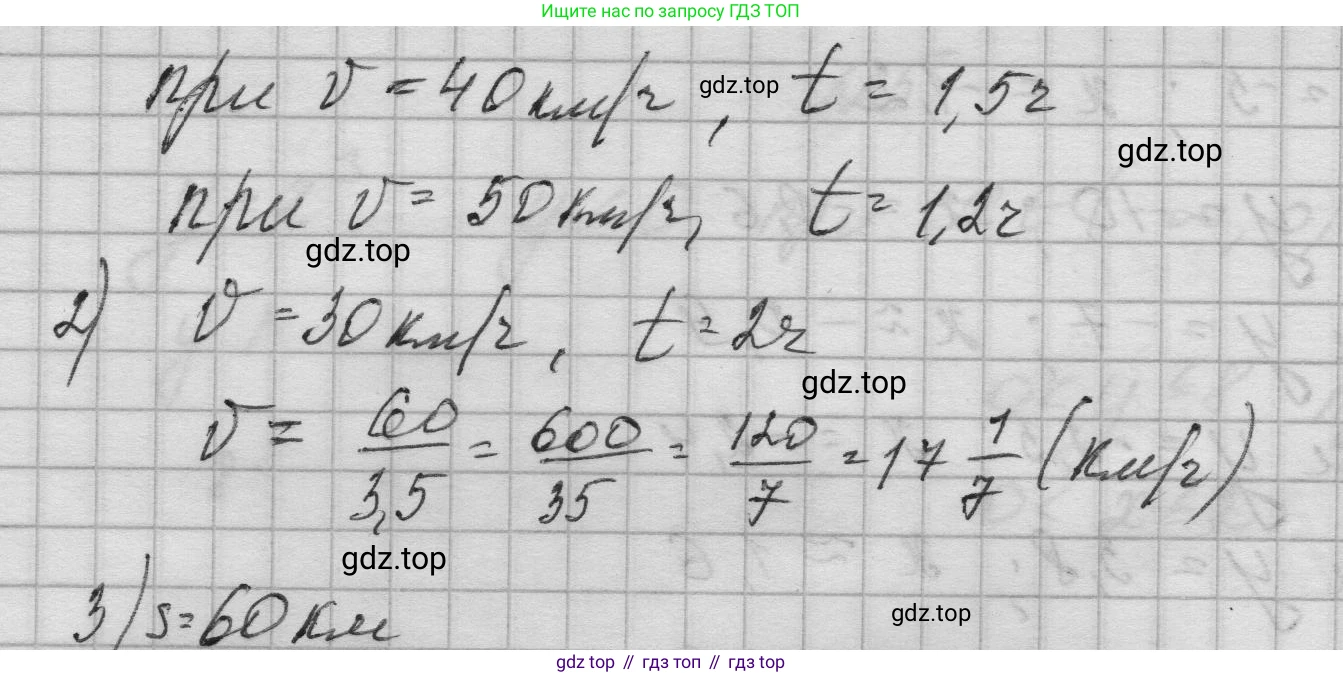 Ищите нас по запросу ГДЗ ТОП
при v = 40 км/ч, t = 1,5ч
gdz.top
gdz.top
при v = 50 км/ч, t = 1,2ч
gdz.top
2) v = 30 км/ч, t = 2ч
gdz.top
v = 60/3,5 = 600/35 = 120/7 = 17 1/7 (км/ч)
gdz.top
3) s = 60 км
gdz.top
gdz top // гдз топ // gdz top